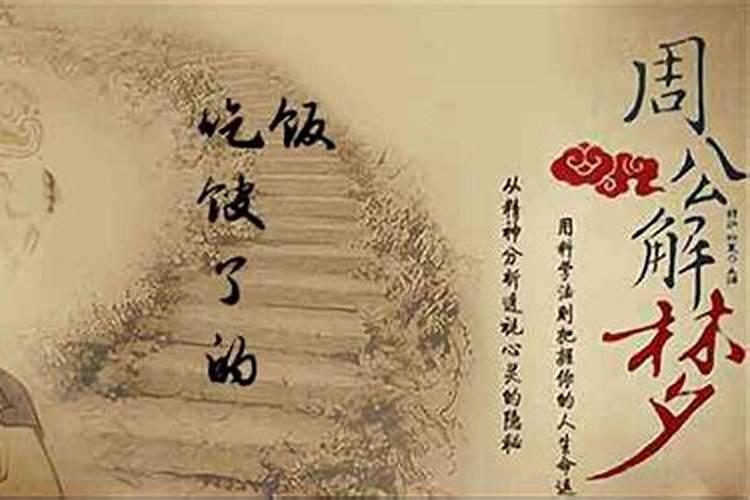 周公解梦
用科学法则把握你的人生命运
从精神分析透视心灵的隐秘
吃饭
馊
了
的